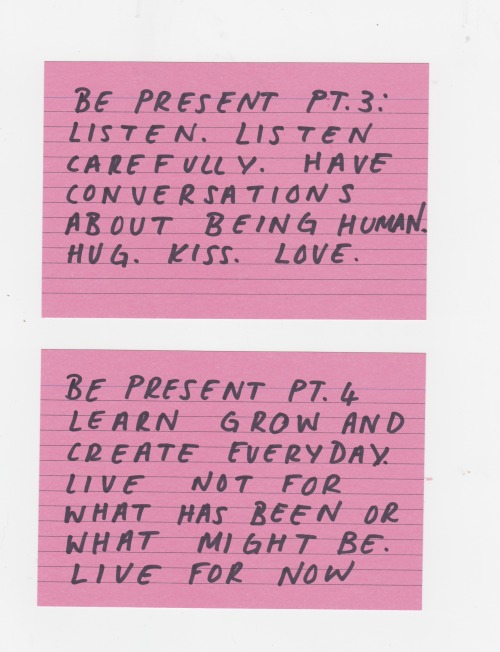 BE PRESENT PT.3:
LISTEN. LISTEN
CAREFULLY. HAVE
CONVERSATIONS
ABOUT BEING HUMAN.
HUG. KISS. LOVE.
BE PRESENT PT. 4
LEARN GROW AND
CREATE EVERYDAY.
LIVE NOT FOR
WHAT HAS BEEN OR
WHAT MIGHT BE.
LIVE FOR NOW